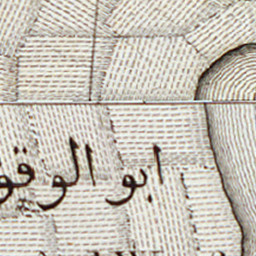 ابو الوقو